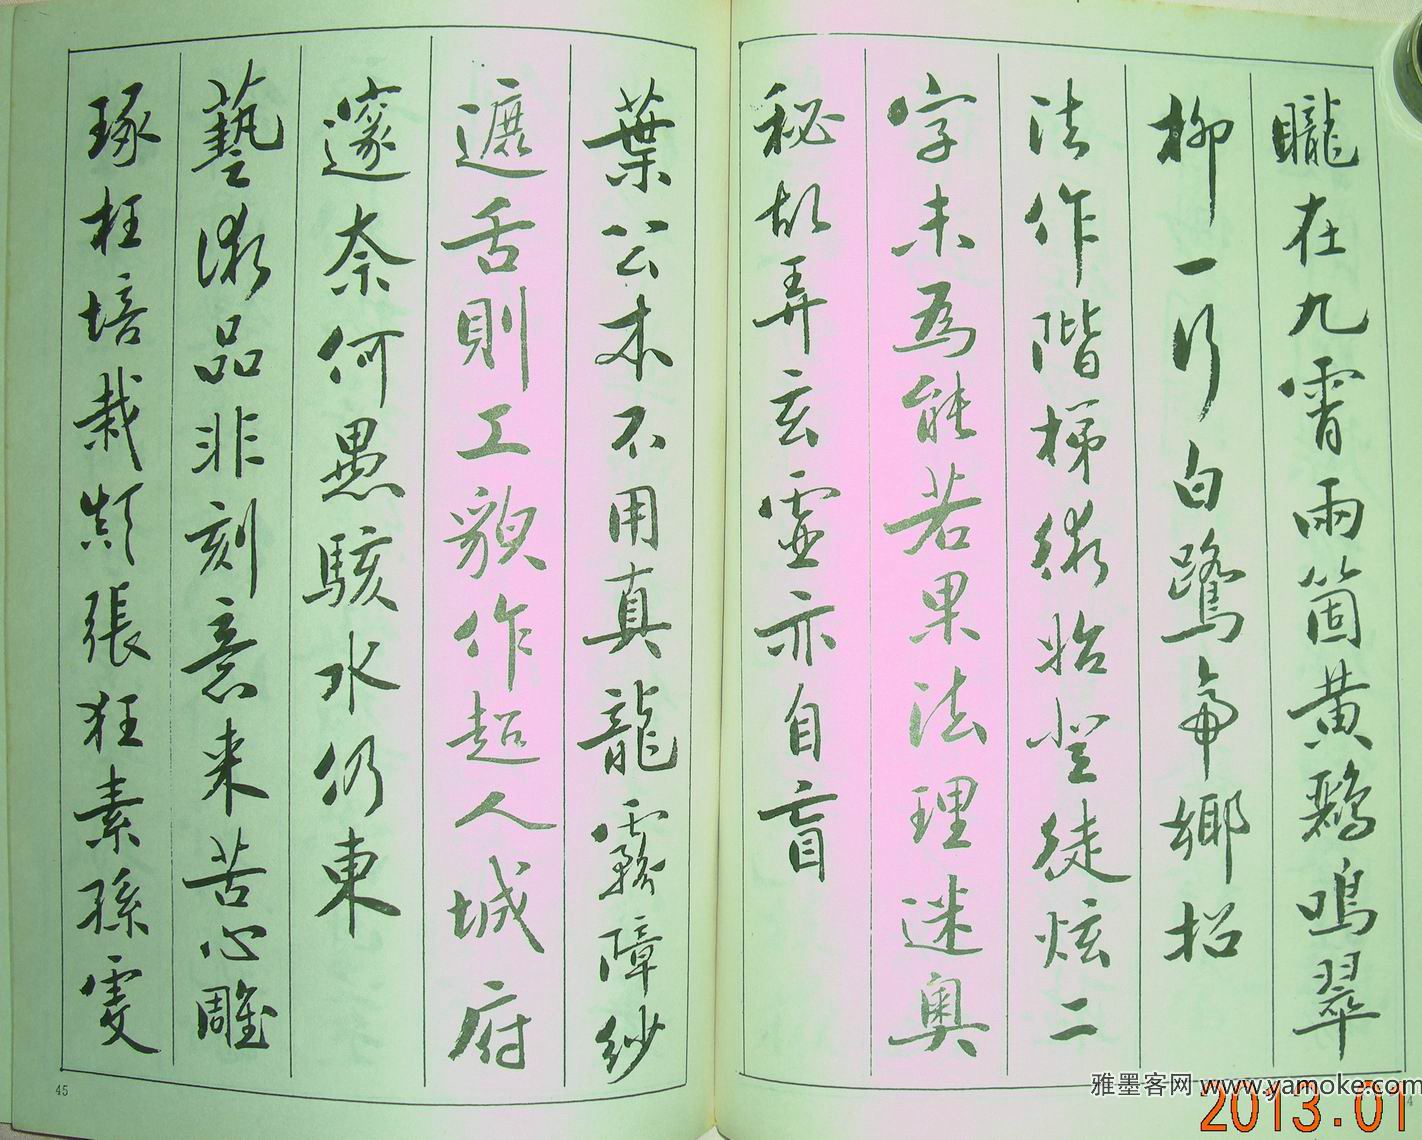 矓在九霄雨箇黃鸝鳴翠
柳一行白鷺命鄉招
法作階梯術始登徒炫二
字未為能若果法理迷奧
秘故弄玄靈亦自盲
葉公本不用真龍霧障紗
遮舌則工貌作超人城府
邃奈何愚駭水仍東
藝術品非刻意来苦心雕
琢枉培栽顛張狂素孫虔
45
雅墨客网 www.yamoke.com
2013.01